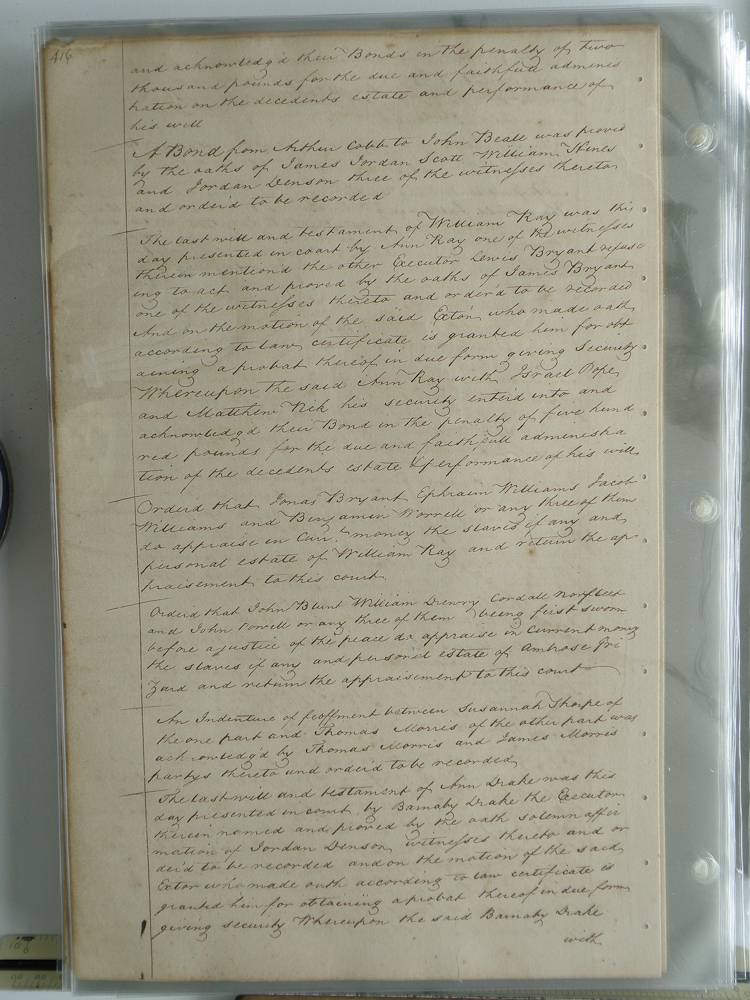 416
and acknowledg'd their Bonds in the penalty of two
thousand pounds for the due and faithfull adminis
tration on the decedents estate and performance of
his will
A Bond from Arthur Cobb to John Beall was proved
by the oaths of James Jordan Scott William Hines
and Jordan Denson three of the witnesses thereto
and order'd to be recorded
The last will and testament of William Kay was this
day presented in court by Ann Kay one of the witnesses
therein mention'd the other Executor Lewis Bryant refuse
ing to act and proved by the oaths of James Bryant
one of the witnesses thereto and order'd to be recorded
And on the motion of the said Exton who made oath
according to law certificate is granted him for obt
aining a probat thereof in due form giving Security
Whereupon the said Ann Kay with Israel Pope
and Matthew his security enterd into and
acknowledg'd their Bond in the penalty of five hund
red pounds for the due and faithfull administra
tion of the decedents estate & performance of his will
Orderd that Jonas Bryant Ephraim Williams Jacob
Williams and Benjamin Worrell or any three of them
do appraise in Curr.t money the slaves if any and
personal estate of William Kay and return the ap
praisement to this court
Orderd that John Blunt William Drewry Cordall Norfleet
and John Powell or any three of them being first sworn
before a justice of the peace do appraise in Current money
the slaves if any and personal estate of Ambrose Gri
zard and return the appraisement to this court
An Indenture of feoffment between Susannah Thorpe of
the one part and Thomas Morris of the other part was
acknowledg'd by Thomas Morris and James Morris
partys thereto and order'd to be recorded
The last will and testament of Ann Drake was this
day presented in court by Barnaby Drake the Executor
therein named and proved by the oath solemn affir
mation of Jordan Denson witnesses thereto and or
der'd to be recorded and on the motion of the said
Extor who made oath according to law certificate is
granted him for obtaining a probat thereof in due form
giving security Whereupon the said Barnaby Drake
with